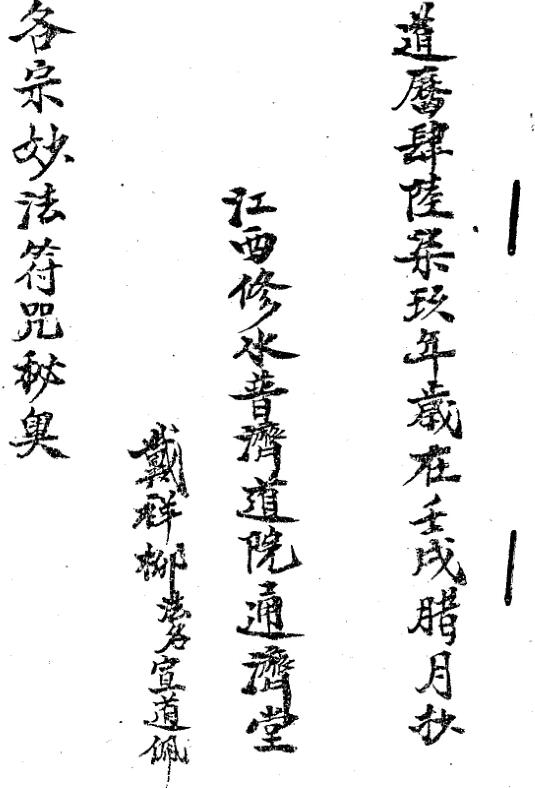 道曆肆陸柒玖年歲在壬戌腊月抄
江西修水普濟道院通濟堂
戴祥柳法名宣道佩
各宗妙法符咒秘奥